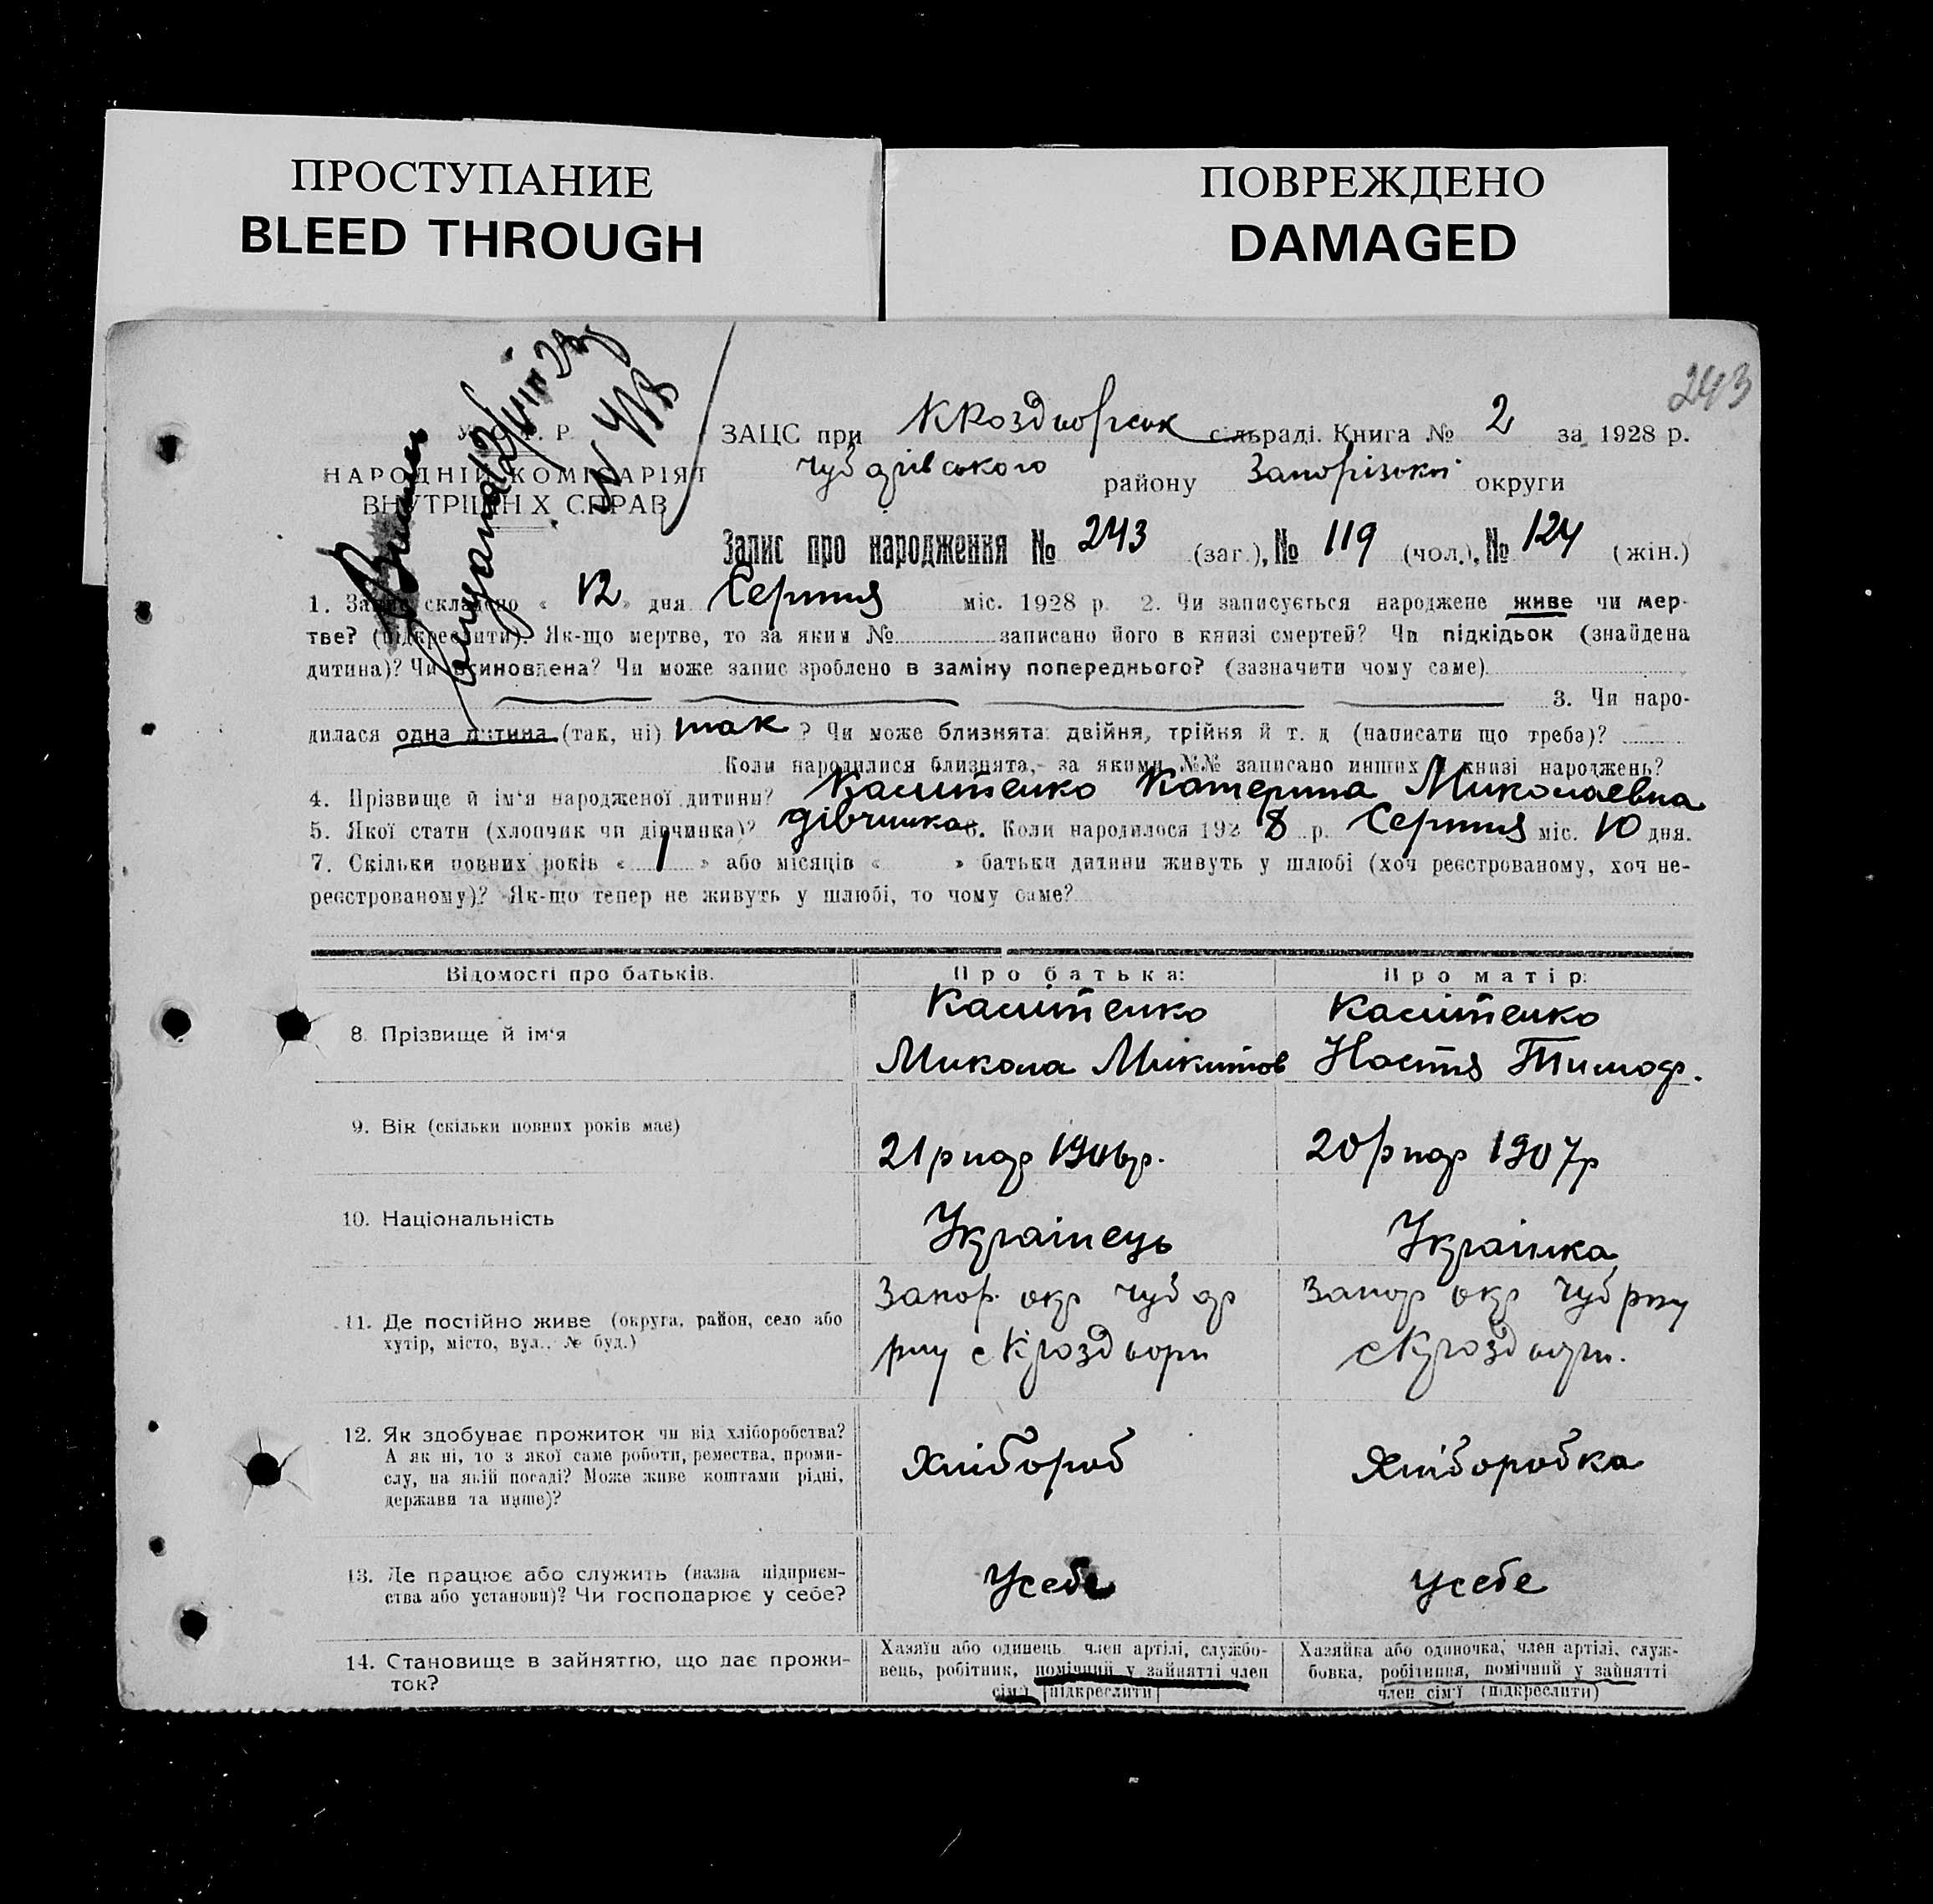 ПРОСТУПАНИЕ
BLEED THROUGH
ПОВРЕЖДЕНО
DAMAGED
243
У. С. Р. Р.
НАРОДНІЙ КОМІСАРІЯТ
ВНУТРІШНІХ СПРАВ
ЗАЦС при сільраді. Книга № 2 за 1928 р.
району Запорізької округи
Запис про народження № 243 (заг.), № 119 (чол.), № 124 (жін.)
1. Запис складено « 12 » дня Серпня міс. 1928 р. 2. Чи записується народжене живе чи мер-
тве? (підкреслити). Як-що мертве, то за яким № записано його в книзі смертей? Чи підкідьок (знайдена
дитина)? Чи всиновлена? Чи може запис зроблено в заміну попереднього? (зазначити чому саме)
3. Чи наро-
дилася одна дитина (так, ні) так ? Чи може близнята: двійня, трійня й т. д (написати що треба)?
Коли народилися близнята, за якими №№ записано инших в книзі народжень?
4. Прізвище й ім'я народженої дитини? Каситенко Катерина Миколаевна
5. Якої стати (хлопчик чи дівчинка)? дівчинка 6. Коли народилося 1928 р. Серпня міс. 10 дня.
7. Скільки повних років « 1 » або місяців « » батьки дитини живуть у шлюбі (хоч реєстрованому, хоч не-
реєстрованому)? Як-що тепер не живуть у шлюбі, то чому саме?
Відомості про батьків. Про батька: Про матір:
8. Прізвище й ім'я
Касітенко
Микола Микитов
Касітенко
Настя Тимоф.
9. Вік (скільки повних років має)
21 р нар 1906 р.
20 р нар 1907 р
10. Національність
Українець
Українка
11. Де постійно живе (округа, район, село або
хутір, місто, вул., № буд.)
Запор. окр
Запор окр
12. Як здобуває прожиток чи від хліборобства?
А як ні, то з якої саме роботи, ремества, проми-
слу, на якій посаді? Може живе коштами рідні,
держави та инше)?
Хлібороб
Хліборобка
13. Де працює або служить (назва підприєм-
ства або установи)? Чи господарює у себе?
Усебе
усебе
14. Становище в зайняттю, що дає прожи-
ток?
Хазяїн або одинець член артілі, службо-
вець, робітник, помічний у зайнятті член
сім'ї (підкреслити)
Хазяйка або одиночка, член артілі, служ-
бовка, робітниця, помічний у зайнятті
член сім'ї (підкреслити)